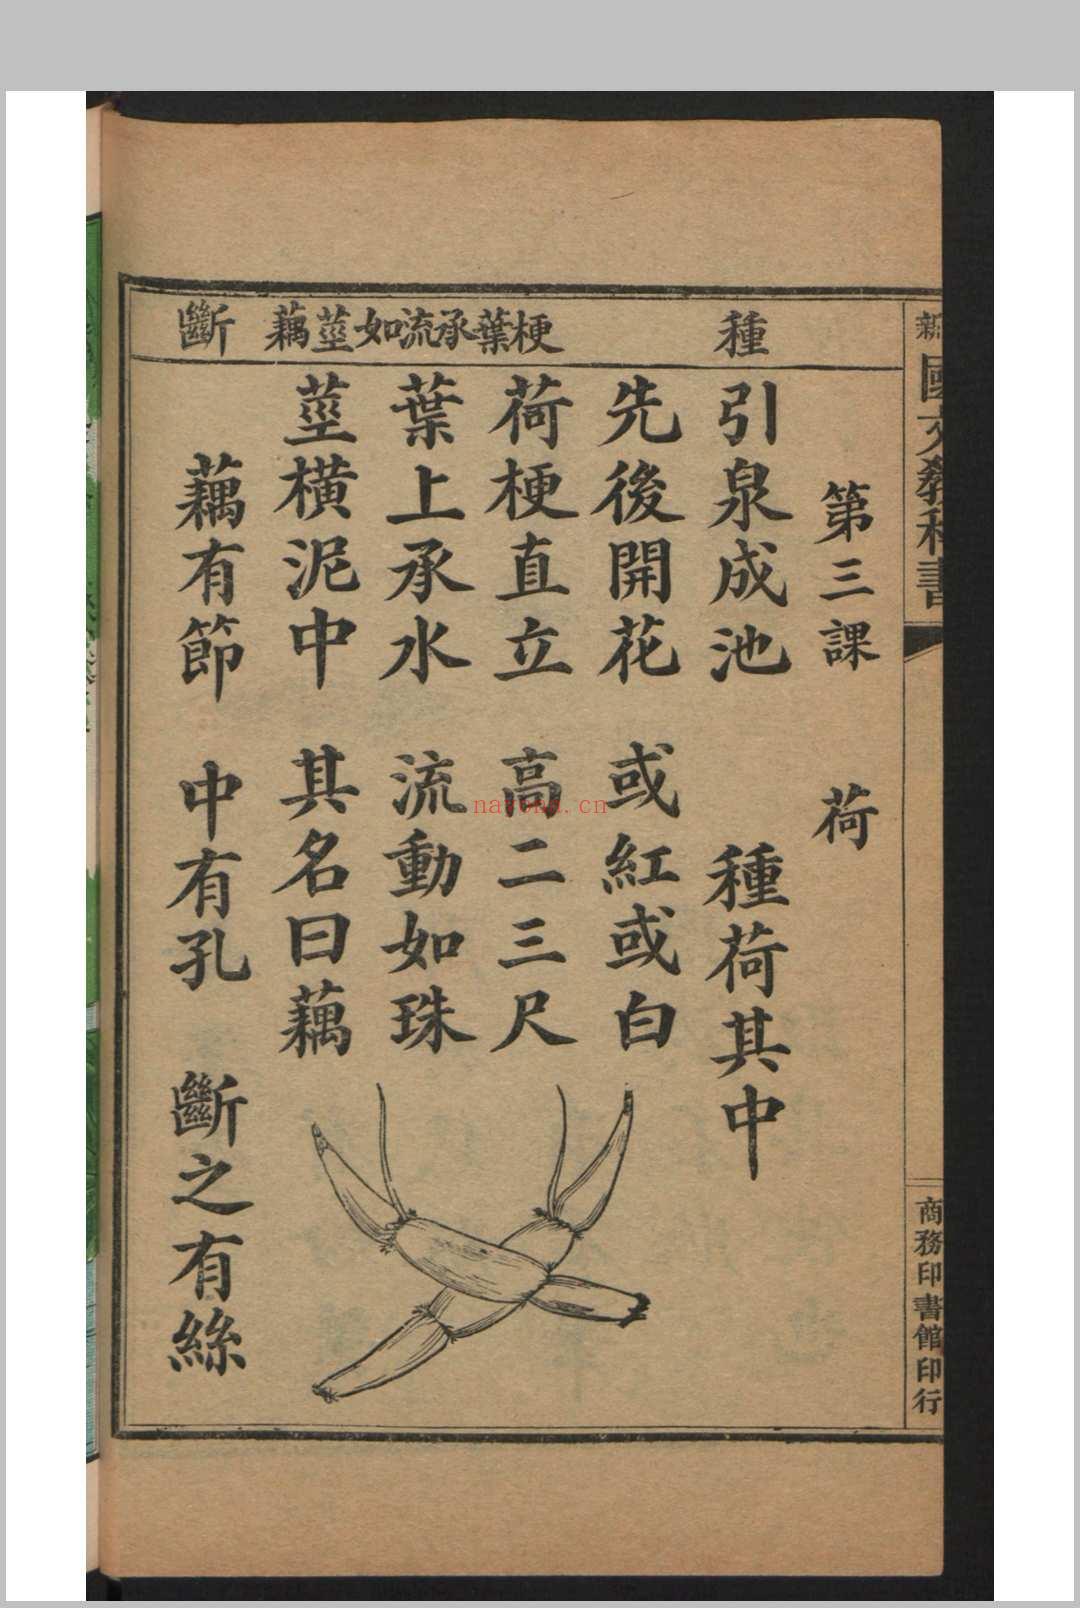 新國文教科書
商務印書館印行
第三課 荷
種
引泉成池 種荷其中
先後開花 或紅或白
梗葉承流如莖藕
荷梗直立 高二三尺
葉上承水 流動如珠
莖橫泥中 其名曰藕
斷
藕有節 中有孔 斷之有絲